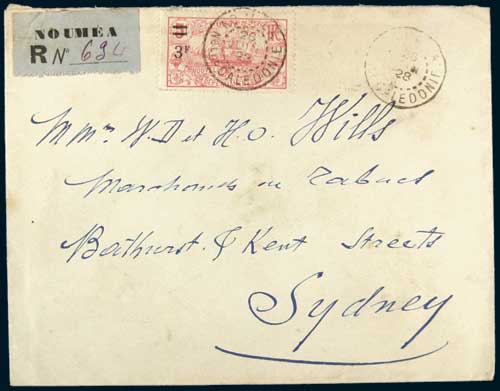 NOUMÉA
R Nº 694
3F RF
Nlle CALEDONIE
28
CALEDONIE
28
Mmrs W.D et H.O. Wills
Marchands de Tabacs
Bathurst & Kent Streets
Sydney